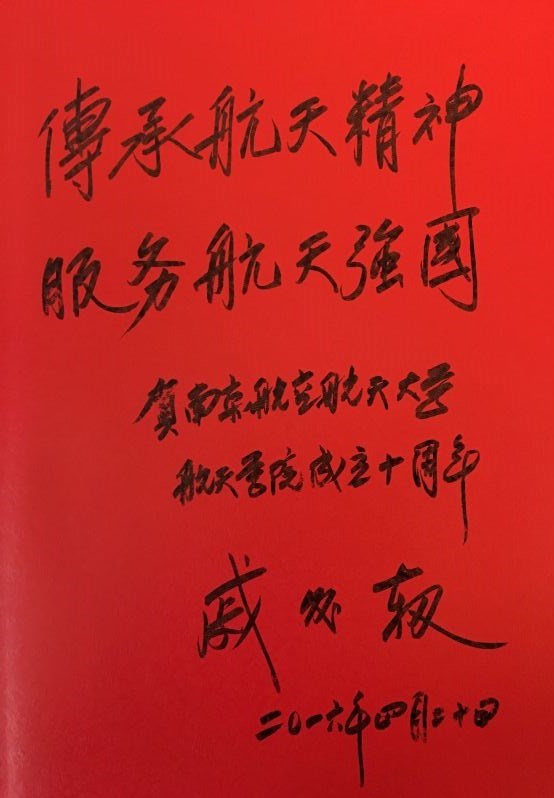 傳承航天精神
服务航天強國
賀南京航空航天大学
航天学院成立十周年
戚发轫
二〇一六年四月二十日